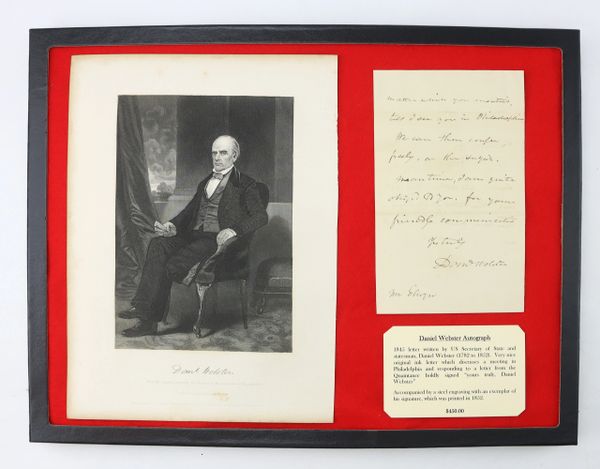 matter which you mention,
you in Philadelphia
We can then confer,
freely, on the subject.
Meantime, I am quite
obligd to you, for your
friendly communication
Yrs truly
Danl Webster
Mr
Danl Webster
Daniel Webster Autograph
1845 letter written by US Secretary of State and
statesman, Daniel Webster (1782 to 1852). Very nice
original ink letter which discusses a meeting in
Philadelphia and responding to a letter from the
boldly signed "yours truly, Daniel
Webster"
Accompanied by a steel engraving with an exemplar of
his signature, which was printed in 1852.
$450.00